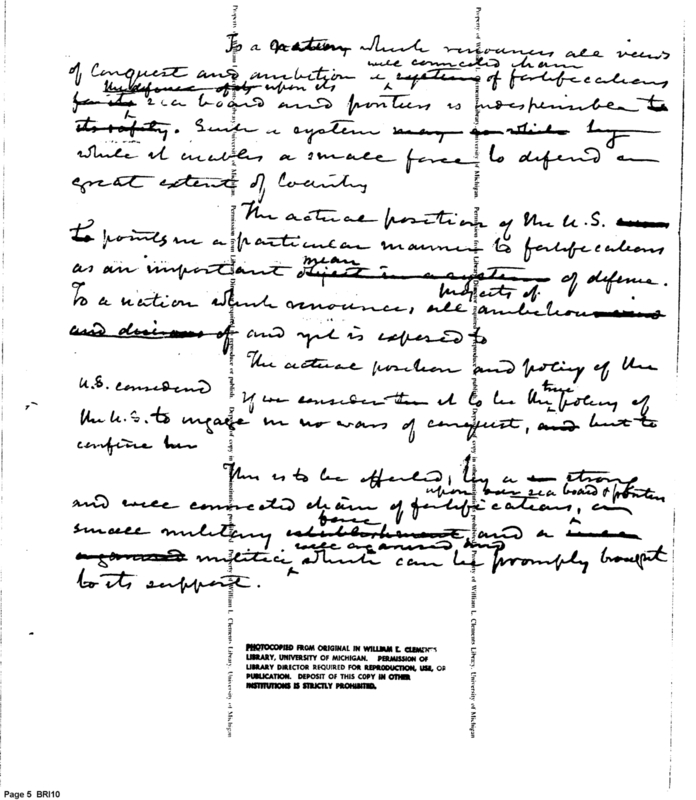 To a nation which renounces all views
well connected chain
of Conquest and ambition a system of fortifications
the defence of its upon its
for its sea board and frontiers is indispensible to
its safety. Such a system may so while by
while it enables a small force to defend a
great extent of Country
The actual position of the U.S.
to points in a particular manner to fortifications
mean
as an important object in a system of defense.
projects of
To a nation which renounces, all ambitious views
and decisions of and yet is exposed to
The actual position and policy of the
U.S. considered
true
If we consider then it to be the policy of
the U.S. to engage in no wars of conquest, and but to
confine her
This is to be effected, by a strong
upon our sea board & frontiers
and well connected chain of fortifications, a
force
small military establishment and a well
well organised and
organised militia which can be promply brought
to its support.
PHOTOCOPIED FROM ORIGINAL IN WILLIAM L. CLEMENTS
LIBRARY, UNIVERSITY OF MICHIGAN. PERMISSION OF
LIBRARY DIRECTOR REQUIRED FOR REPRODUCTION, USE, OR
PUBLICATION. DEPOSIT OF THIS COPY IN OTHER
INSTITUTIONS IS STRICTLY PROHIBITED.
Page 5 BRI10